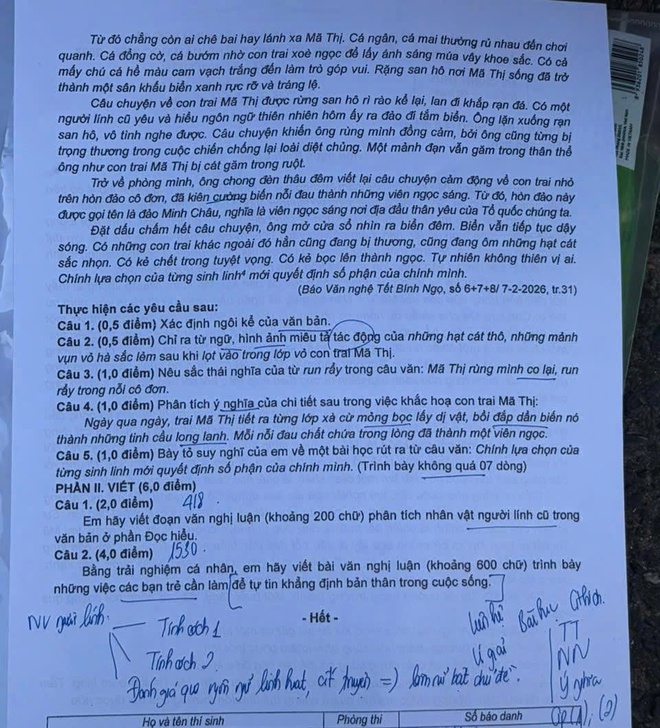 Từ đó chẳng còn ai chê bai hay lánh xa Mã Thị. Cá ngân, cá mai thường rủ nhau đến chơi
quanh. Cá đồng cờ, cá bướm nhờ con trai xoè ngọc để lấy ánh sáng múa vây khoe sắc. Có cả
mấy chú cá hề màu cam vạch trắng đến làm trò góp vui. Rặng san hô nơi Mã Thị sống đã trở
thành một sân khấu biển xanh rực rỡ và tráng lệ.
Câu chuyện về con trai Mã Thị được rừng san hô rì rào kể lại, lan đi khắp rạn đá. Có một
người lính cũ yêu và hiểu ngôn ngữ thiên nhiên hôm ấy ra đảo đi tắm biển. Ông lặn xuống rạn
san hô, vô tình nghe được. Câu chuyện khiến ông rùng mình đồng cảm, bởi ông cũng từng bị
trọng thương trong cuộc chiến chống lại loài diệt chủng. Một mảnh đạn vẫn găm trong thân thể
ông như con trai Mã Thị bị cát găm trong ruột.
Trở về phòng mình, ông chong đèn thâu đêm viết lại câu chuyện cảm động về con trai nhỏ
trên hòn đảo cô đơn, đã kiên cường biến nỗi đau thành những viên ngọc sáng. Từ đó, hòn đảo này
được gọi tên là đảo Minh Châu, nghĩa là viên ngọc sáng nơi địa đầu thân yêu của Tổ quốc chúng ta.
Đặt dấu chấm hết câu chuyện, ông mở cửa sổ nhìn ra biển đêm. Biển vẫn tiếp tục dậy
sóng. Có những con trai khác ngoài đó hẳn cũng đang bị thương, cũng đang ôm những hạt cát
sắc nhọn. Có kẻ chết trong tuyệt vọng. Có kẻ bọc lên thành ngọc. Tự nhiên không thiên vị ai.
Chính lựa chọn của từng sinh linh⁴ mới quyết định số phận của chính mình.
(Báo Văn nghệ Tết Bính Ngọ, số 6+7+8/ 7-2-2026, tr.31)
Thực hiện các yêu cầu sau:
Câu 1. (0,5 điểm) Xác định ngôi kể của văn bản.
Câu 2. (0,5 điểm) Chỉ ra từ ngữ, hình ảnh miêu tả tác động của những hạt cát thô, những mảnh
vụn vỏ hà sắc lẻm sau khi lọt vào trong lớp vỏ con trai Mã Thị.
Câu 3. (1,0 điểm) Nêu sắc thái nghĩa của từ run rẩy trong câu văn: Mã Thị rùng mình co lại, run
rẩy trong nỗi cô đơn.
Câu 4. (1,0 điểm) Phân tích ý nghĩa của chi tiết sau trong việc khắc hoạ con trai Mã Thị:
Ngày qua ngày, trai Mã Thị tiết ra từng lớp xà cừ mỏng bọc lấy dị vật, bồi đắp dần biến nó
thành những tinh cầu long lanh. Mỗi nỗi đau chất chứa trong lòng đã thành một viên ngọc.
Câu 5. (1,0 điểm) Bày tỏ suy nghĩ của em về một bài học rút ra từ câu văn: Chính lựa chọn của
từng sinh linh mới quyết định số phận của chính mình. (Trình bày không quá 07 dòng)
PHẦN II. VIẾT (6,0 điểm)
Câu 1. (2,0 điểm) 418
Em hãy viết đoạn văn nghị luận (khoảng 200 chữ) phân tích nhân vật người lính cũ trong
văn bản ở phần Đọc hiểu.
Câu 2. (4,0 điểm) 1530
Bằng trải nghiệm cá nhân, em hãy viết bài văn nghị luận (khoảng 600 chữ) trình bày
những việc các bạn trẻ cần làm để tự tin khẳng định bản thân trong cuộc sống.
- Hết -
NV người lính Tính cách 1 Liên hệ Bài học
TT
Tính cách 2 NN
Đánh giá qua ngôn ngữ linh hoạt, => làm nổi bật chủ đề Ý nghĩa
Họ và tên thí sinh Phòng thi Số báo danh